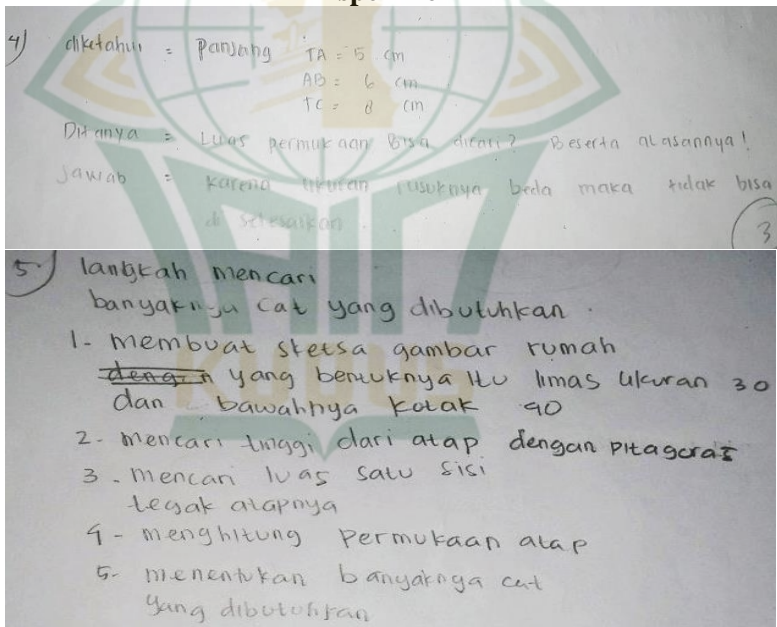 4) diketahui = Panjang TA = 5 cm
AB = 6 cm
TC = 8 cm
Ditanya = Luas permukaan Bisa dicari? Beserta alasannya!
Jawab = Karena ukuran rusuknya beda maka tidak bisa
di selesaikan
3
5.) langkah mencari
banyaknya cat yang dibutuhkan.
1- membuat sketsa gambar rumah
yang bentuknya itu limas ukuran 30
dan bawahnya kotak 40
2- mencari tinggi dari atap dengan Pitagoras
3. mencari luas satu sisi
tegak atapnya
4- menghitung Permukaan atap
5- menentukan banyaknya cat
yang dibutuhkan
KUDUS